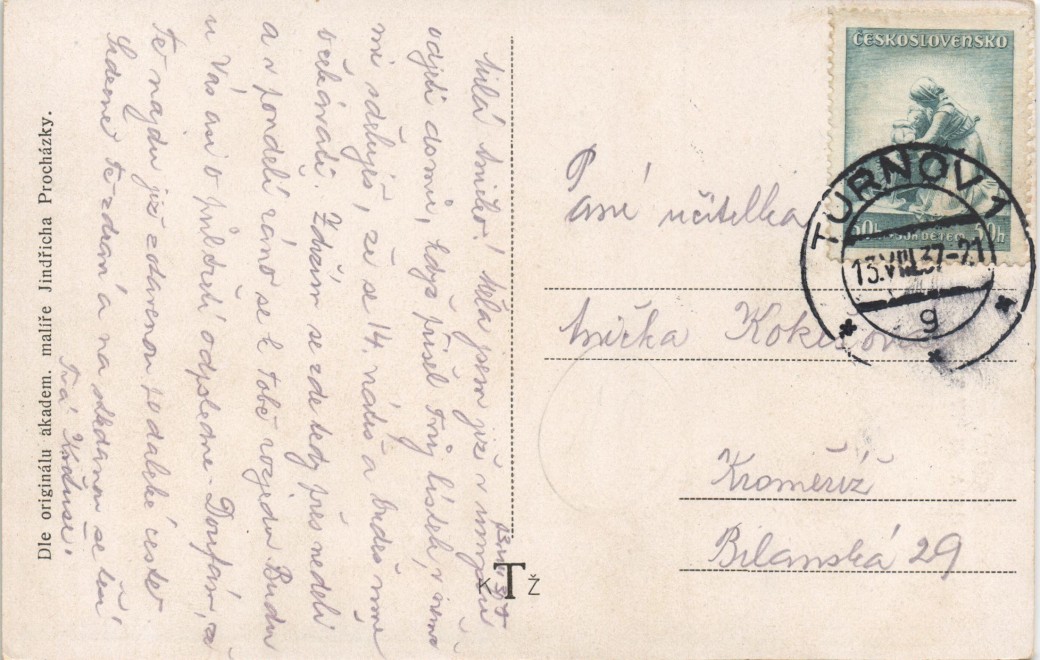 Dle originálu akadem. malíře Jindřicha Procházky.
Milá Mičko! Měla jsem již v úmyslu
odjeti domů, když přišel Tvůj lístek, v němž
mi sděluješ, že se 14. vrátíš a budeš mne
očekávati. Zdržím se zde tedy přes neděli
a v pondělí ráno se k tobě rozjedu. Budu
u Vás asi o půl třetí odpoledne. Doufám, že
Tě najdu již zotavenou po daleké cestě
Srdečně Tě zdraví a na shledanou se těší
Tvá
13./VIII 37
K T Ž
ČESKOSLOVENSKO
50h DĚTEM 50h
TURNOV 1
13.VIII.37-21
g
Paní učitelka
Mička
Kroměříž
Bílanská 29